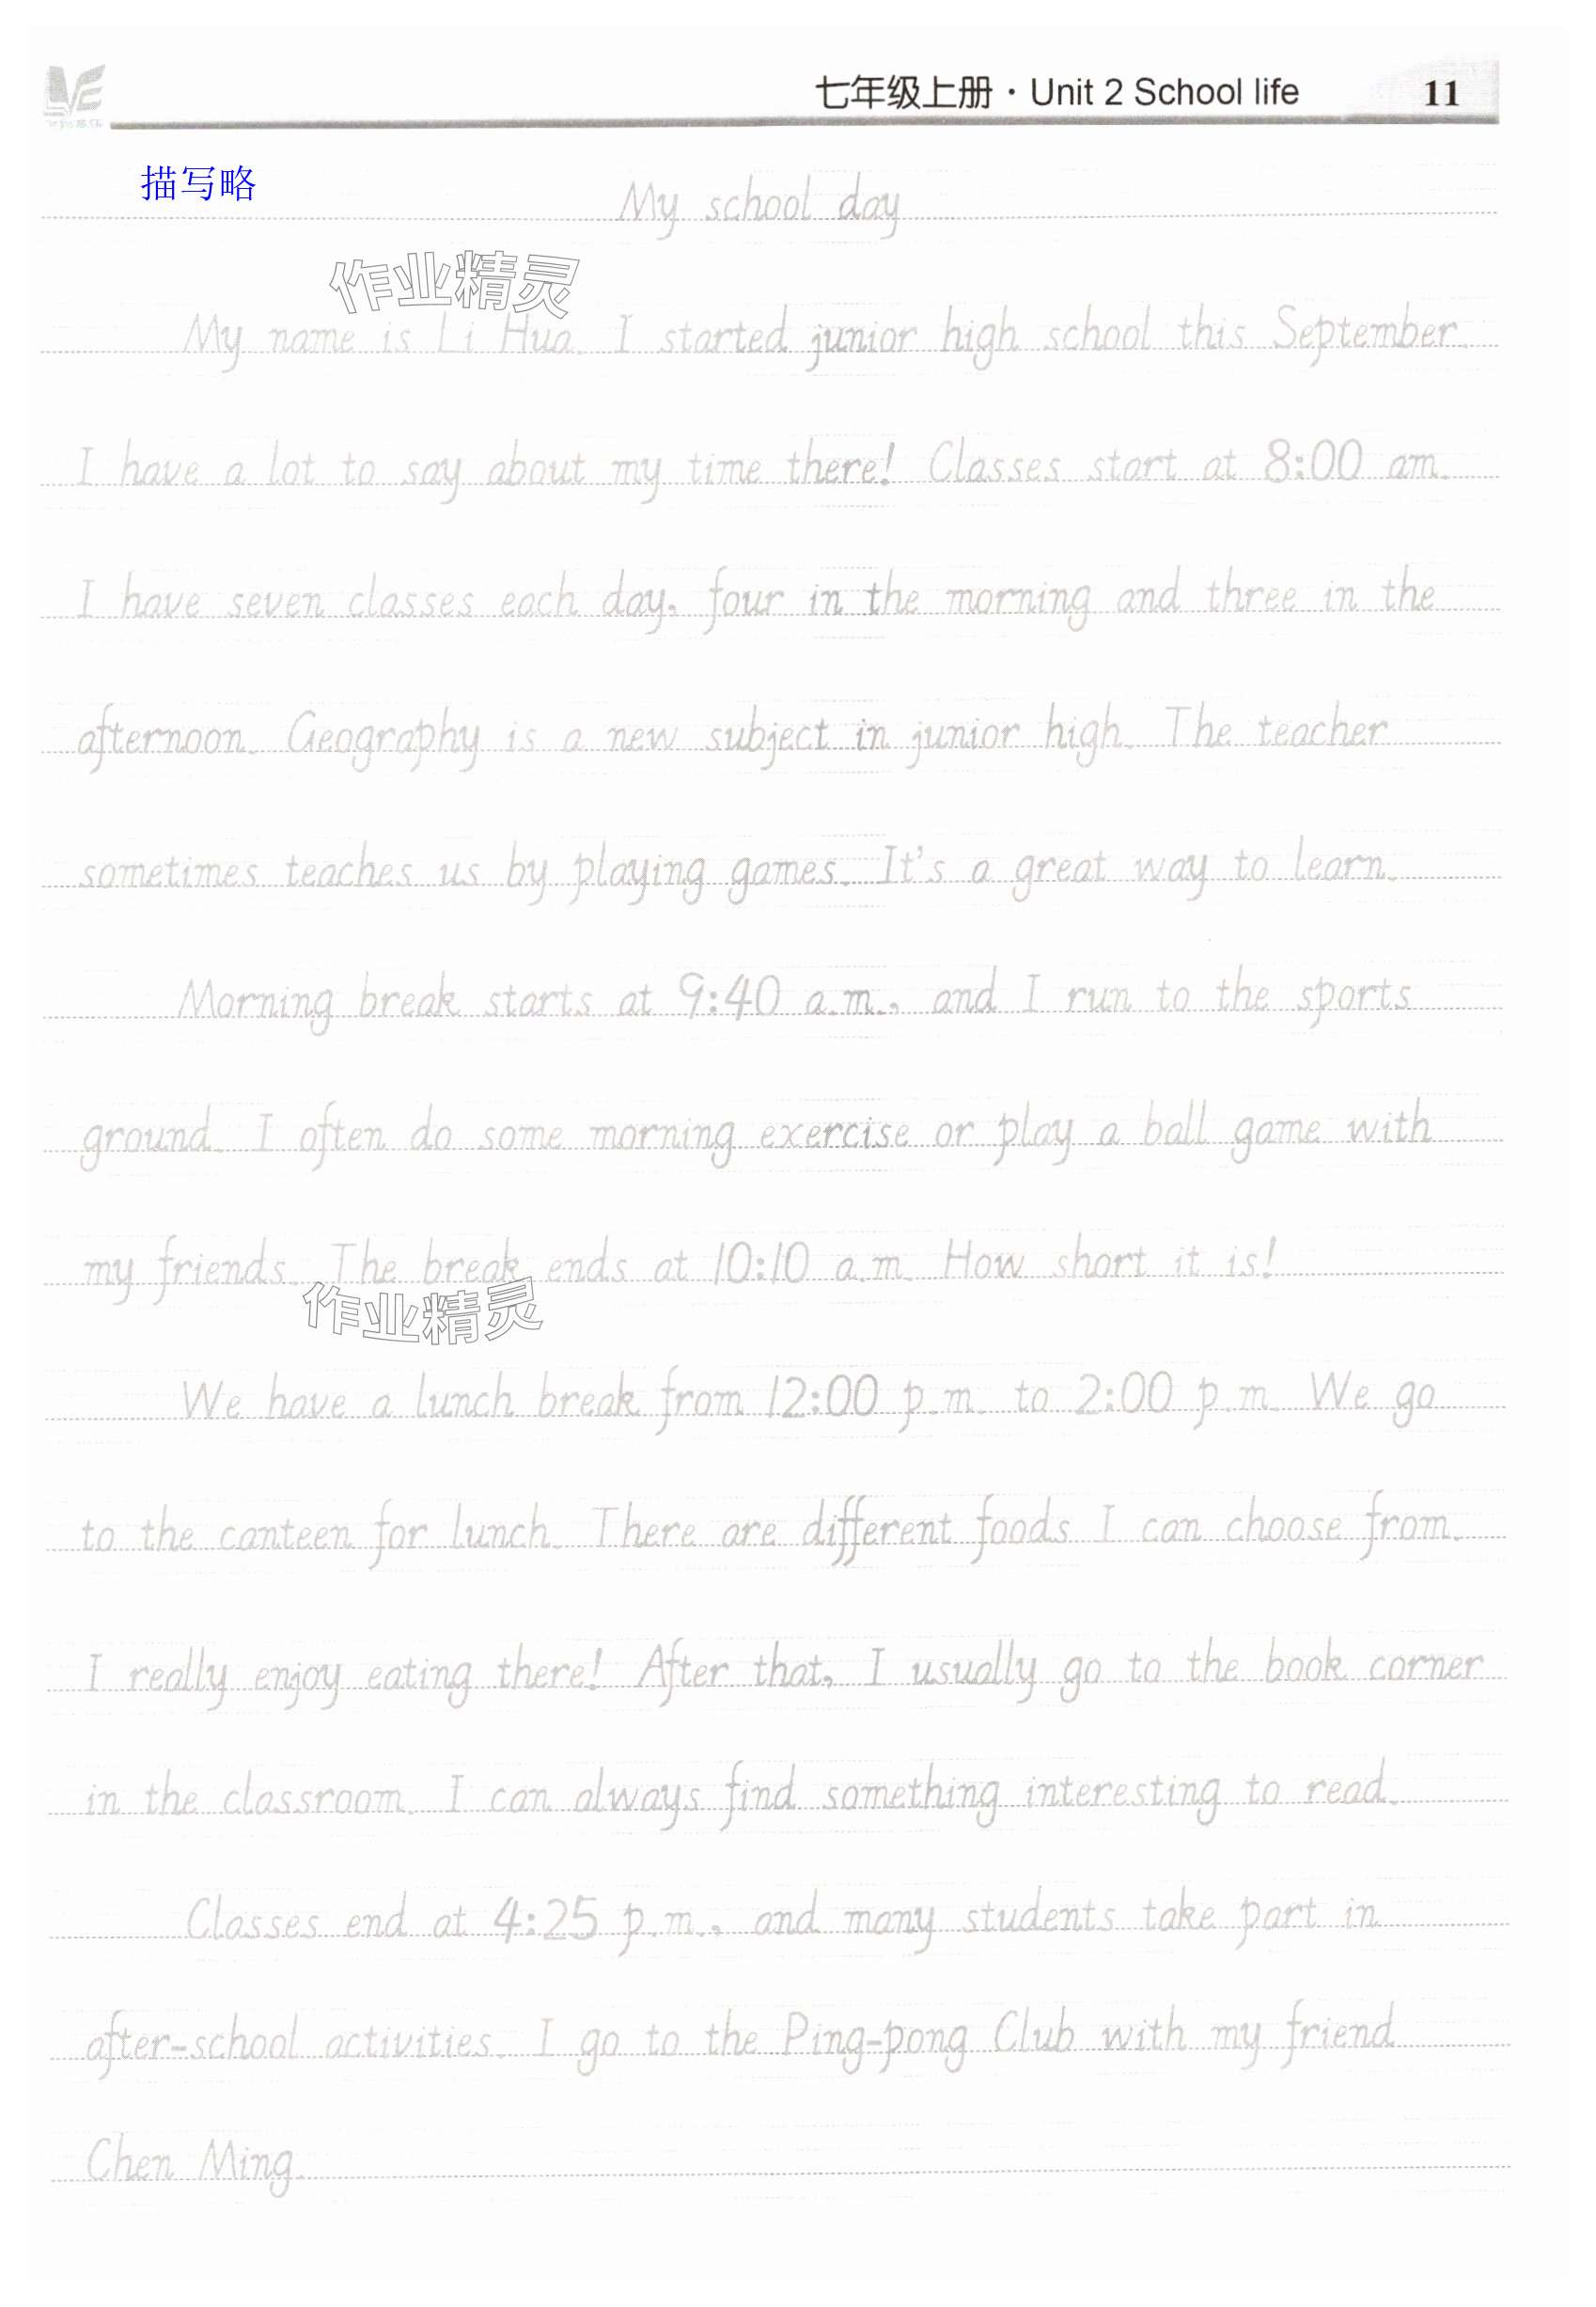 七年级上册·Unit 2 School life 11
描写略
My school day
作业精灵
My name is Li Hua. I started junior high school this September.
I have a lot to say about my time there! Classes start at 8:00 am.
I have seven classes each day, four in the morning and three in the
afternoon. Geography is a new subject in junior high. The teacher
sometimes teaches us by playing games. It's a great way to learn.
Morning break starts at 9:40 a.m., and I run to the sports
ground. I often do some morning exercise or play a ball game with
my friends. The break ends at 10:10 a.m. How short it is!
作业精灵
We have a lunch break from 12:00 p.m. to 2:00 p.m. We go
to the canteen for lunch. There are different foods I can choose from.
I really enjoy eating there! After that, I usually go to the book corner
in the classroom. I can always find something interesting to read.
Classes end at 4:25 p.m., and many students take part in
after-school activities. I go to the Ping-pong Club with my friend
Chen Ming.